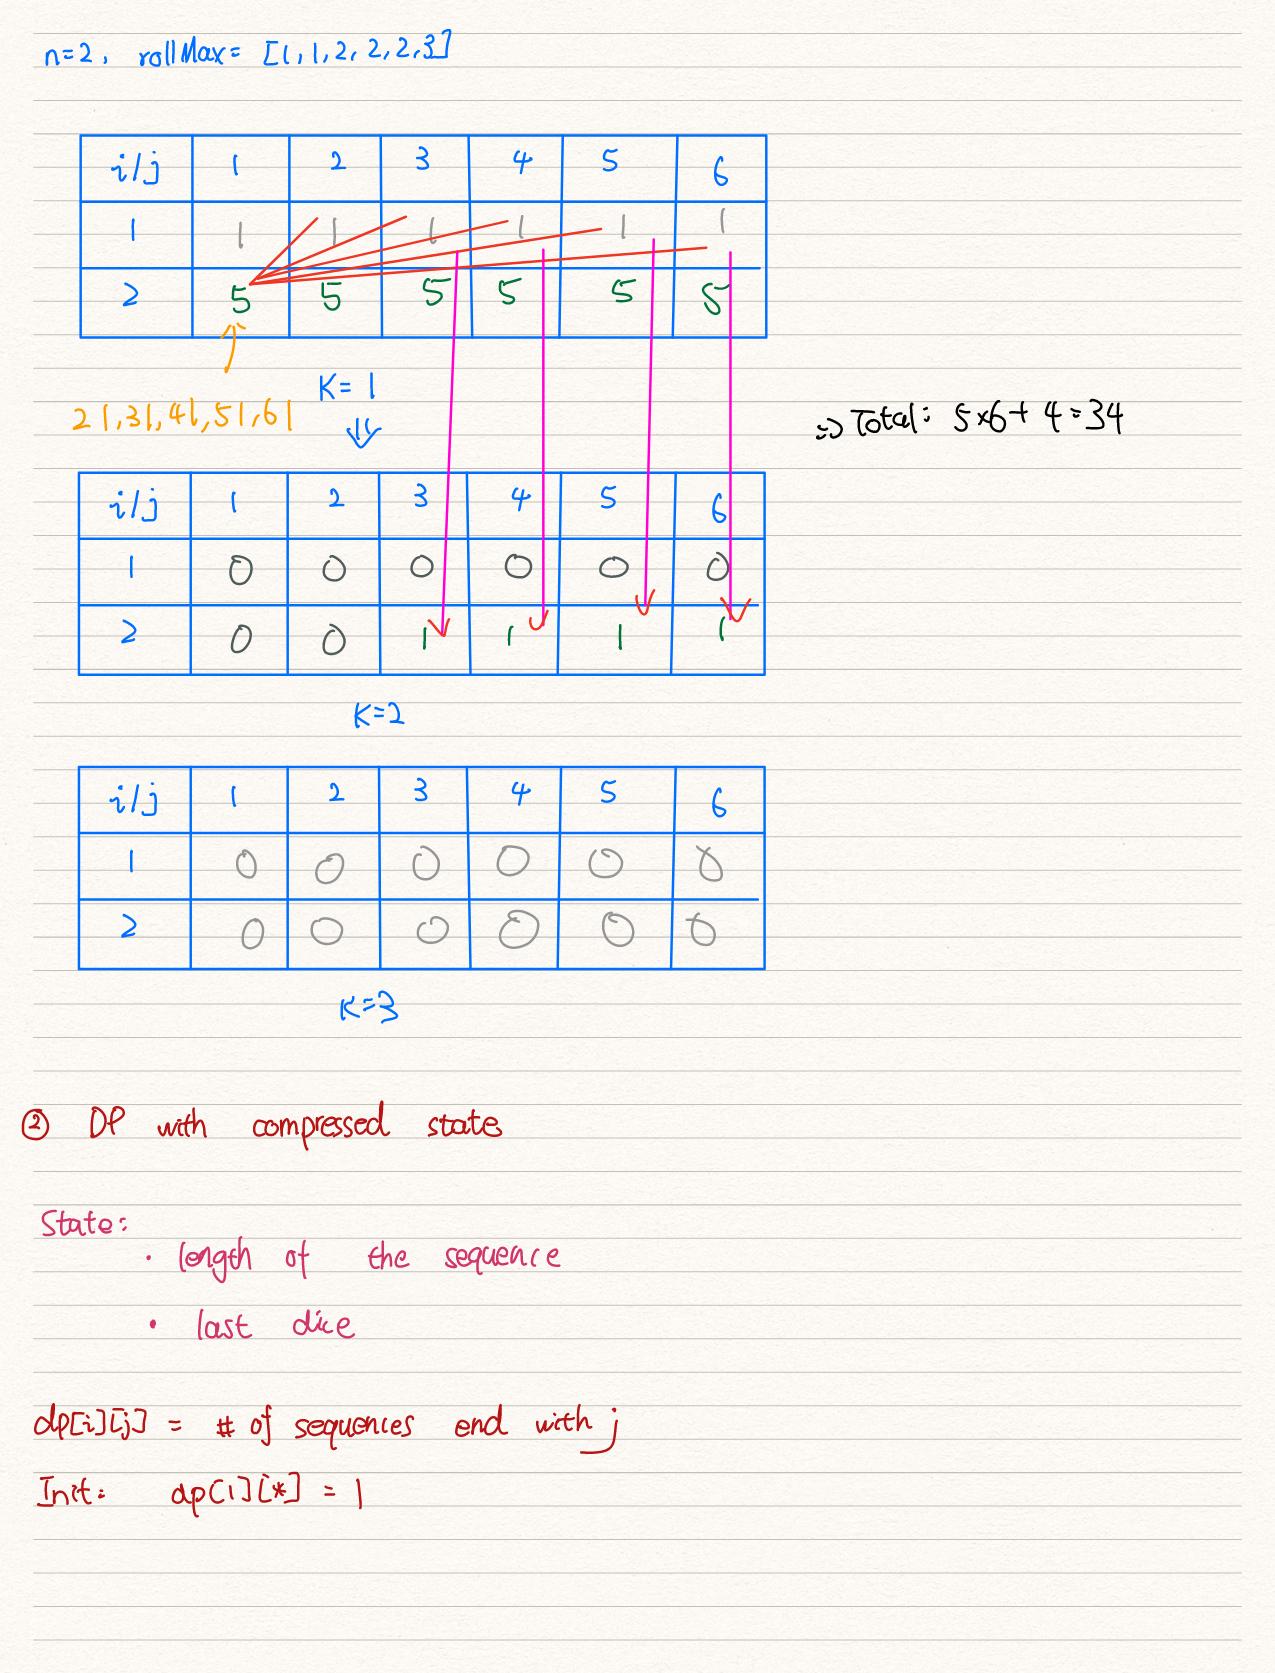 n=2, rollMax= [1,1,2,2,2,3]
i/j 1 2 3 4 5 6
1 1 1 1 1 1 1
2 5 5 5 5 5 5
K=1
21,31,41,51,61
⇓
⇒ Total: 5×6+4=34
i/j 1 2 3 4 5 6
1 0 0 0 0 0 0
2 0 0 1 1 1 1
K=2
i/j 1 2 3 4 5 6
1 0 0 0 0 0 0
2 0 0 0 0 0 0
K=3
② DP with compressed state
State:
· length of the sequence
· last dice
dp[i][j] = # of sequences end with j
Init: dp[1][*] = 1